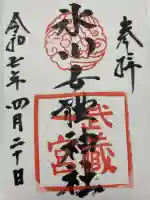 奉拝
氷川女體神社
武蔵
一宮
令和七年四月二十日